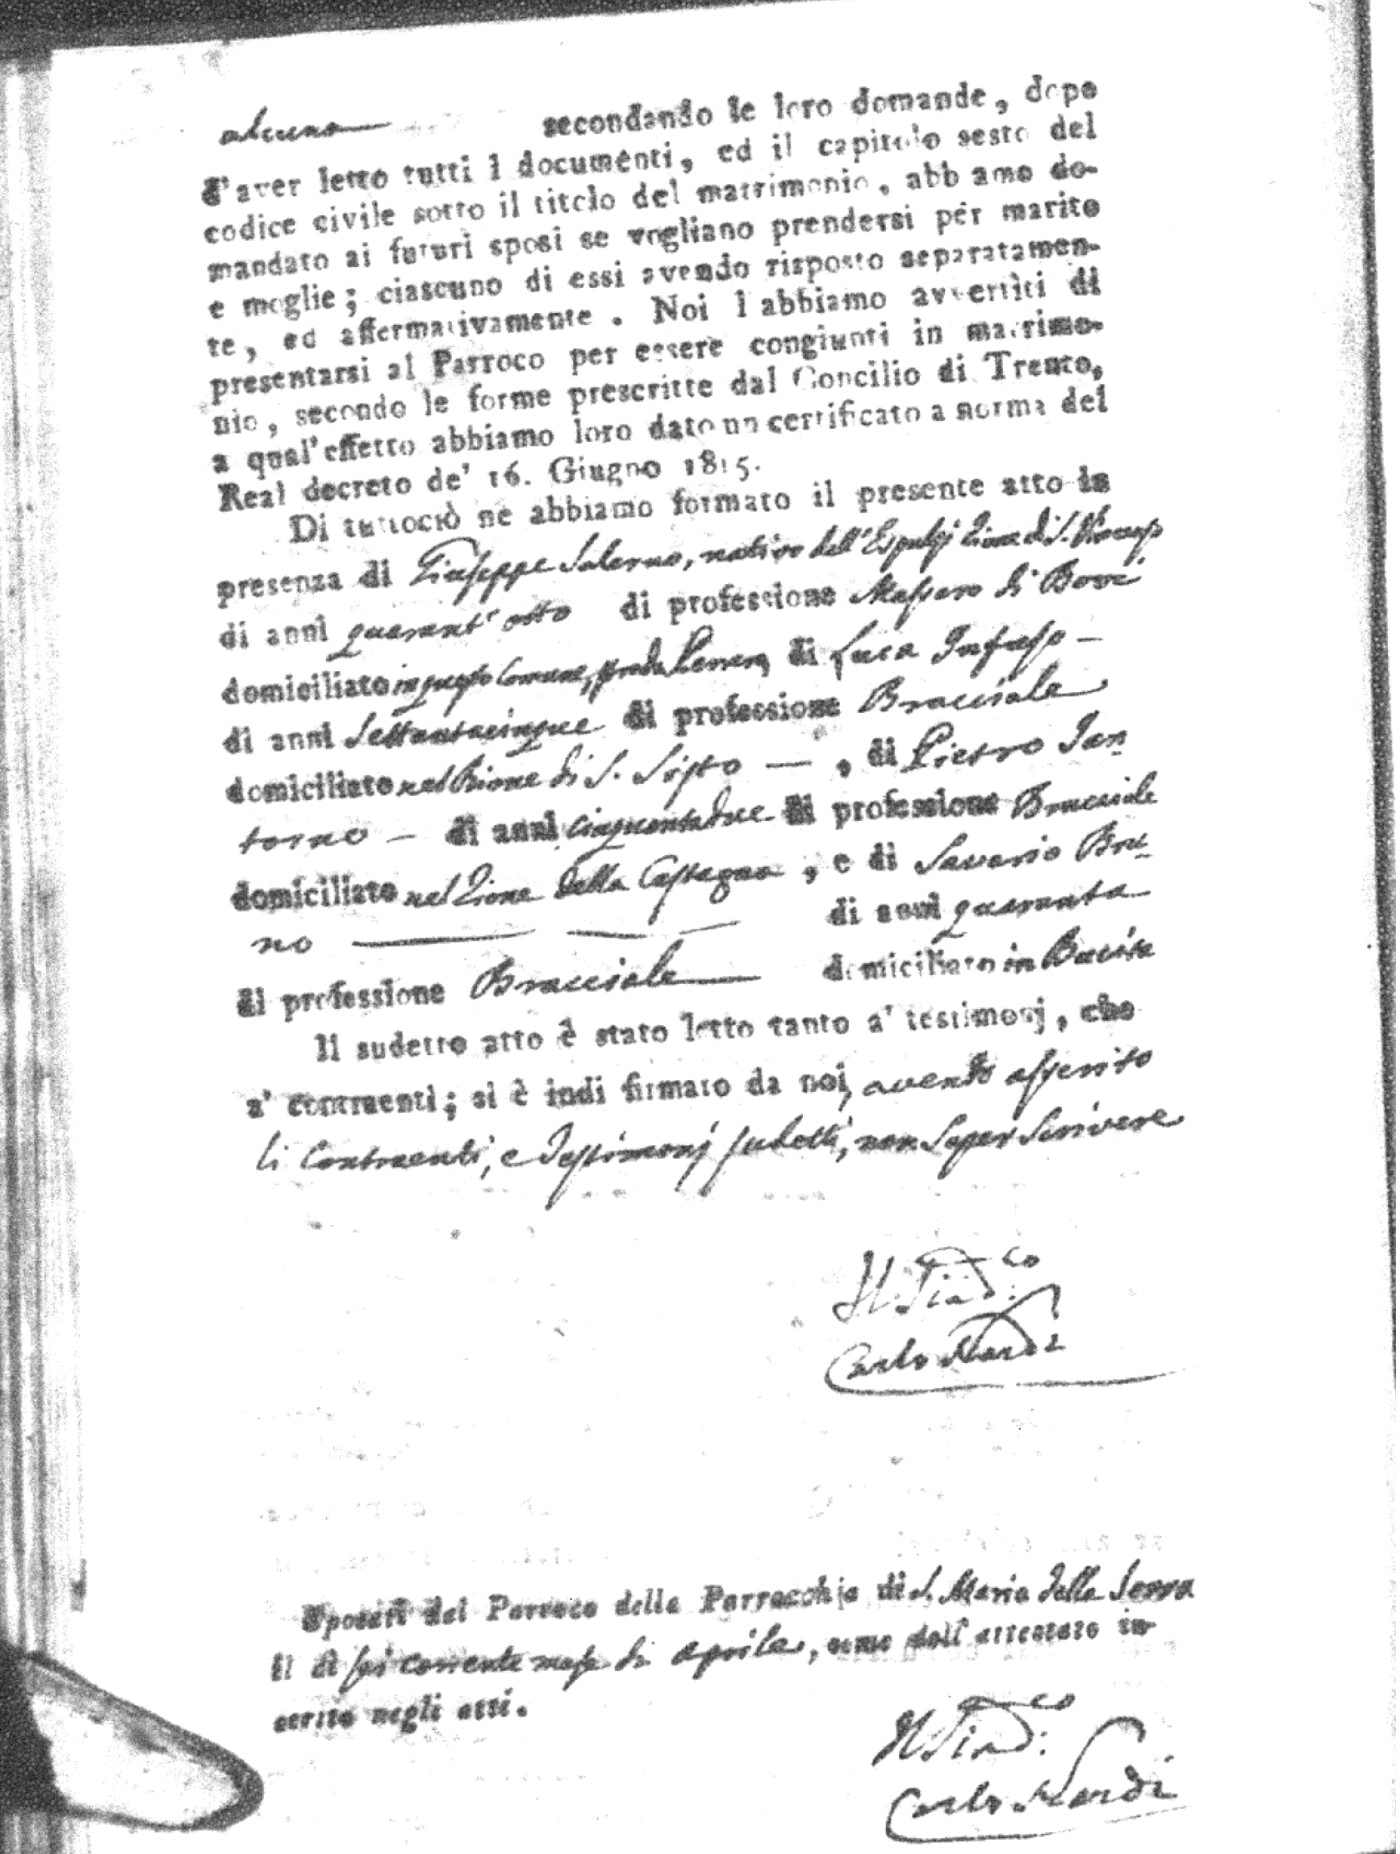 alcuna secondando le loro domande, dopo
d'aver letto tutti i documenti, ed il capitolo sesto del
codice civile sotto il titolo del matrimonio, abbiamo do-
mandato ai futuri sposi se vogliano prendersi per marito
e moglie; ciascuno di essi avendo risposto separatamen-
te, ed affermativamente. Noi l'abbiamo avvertiti di
presentarsi al Parroco per essere congiunti in matrimo-
nio, secondo le forme prescritte dal Concilio di Trento,
a qual'effetto abbiamo loro dato un certificato a norma del
Real decreto de' 16. Giugno 1815.
Di tuttociò ne abbiamo formato il presente atto in
presenza di Giuseppe Salerno, nativo dell' di S.
di anni quarant'otto di professione Massaro di Bovi
domiciliato in questo Comune, di Luca Infusso —
di anni Settantacinque di professione Bracciale
domiciliato nel Rione di S. Sisto — , di Pietro Ian-
torno — di anni cinquantadue di professione Bracciale
domiciliato nel Rione della Castagna , e di Saverio Bru-
no — di anni quaranta
di professione Bracciale domiciliato in
Il sudetto atto è stato letto tanto a' testimonj, che
a' contraenti; si è indi firmato da noi, avendo asserito
li Contraenti, e Testimonj sudetti, non saper scrivere
Il Sind.co
Carlo Nardi
Sposati dal Parroco della Parrocchia di S. Maria della Serra
il dì sei corrente mese di Aprile, come dall'attestato in-
serito negli atti.
Il Sind.co
Carlo Nardi